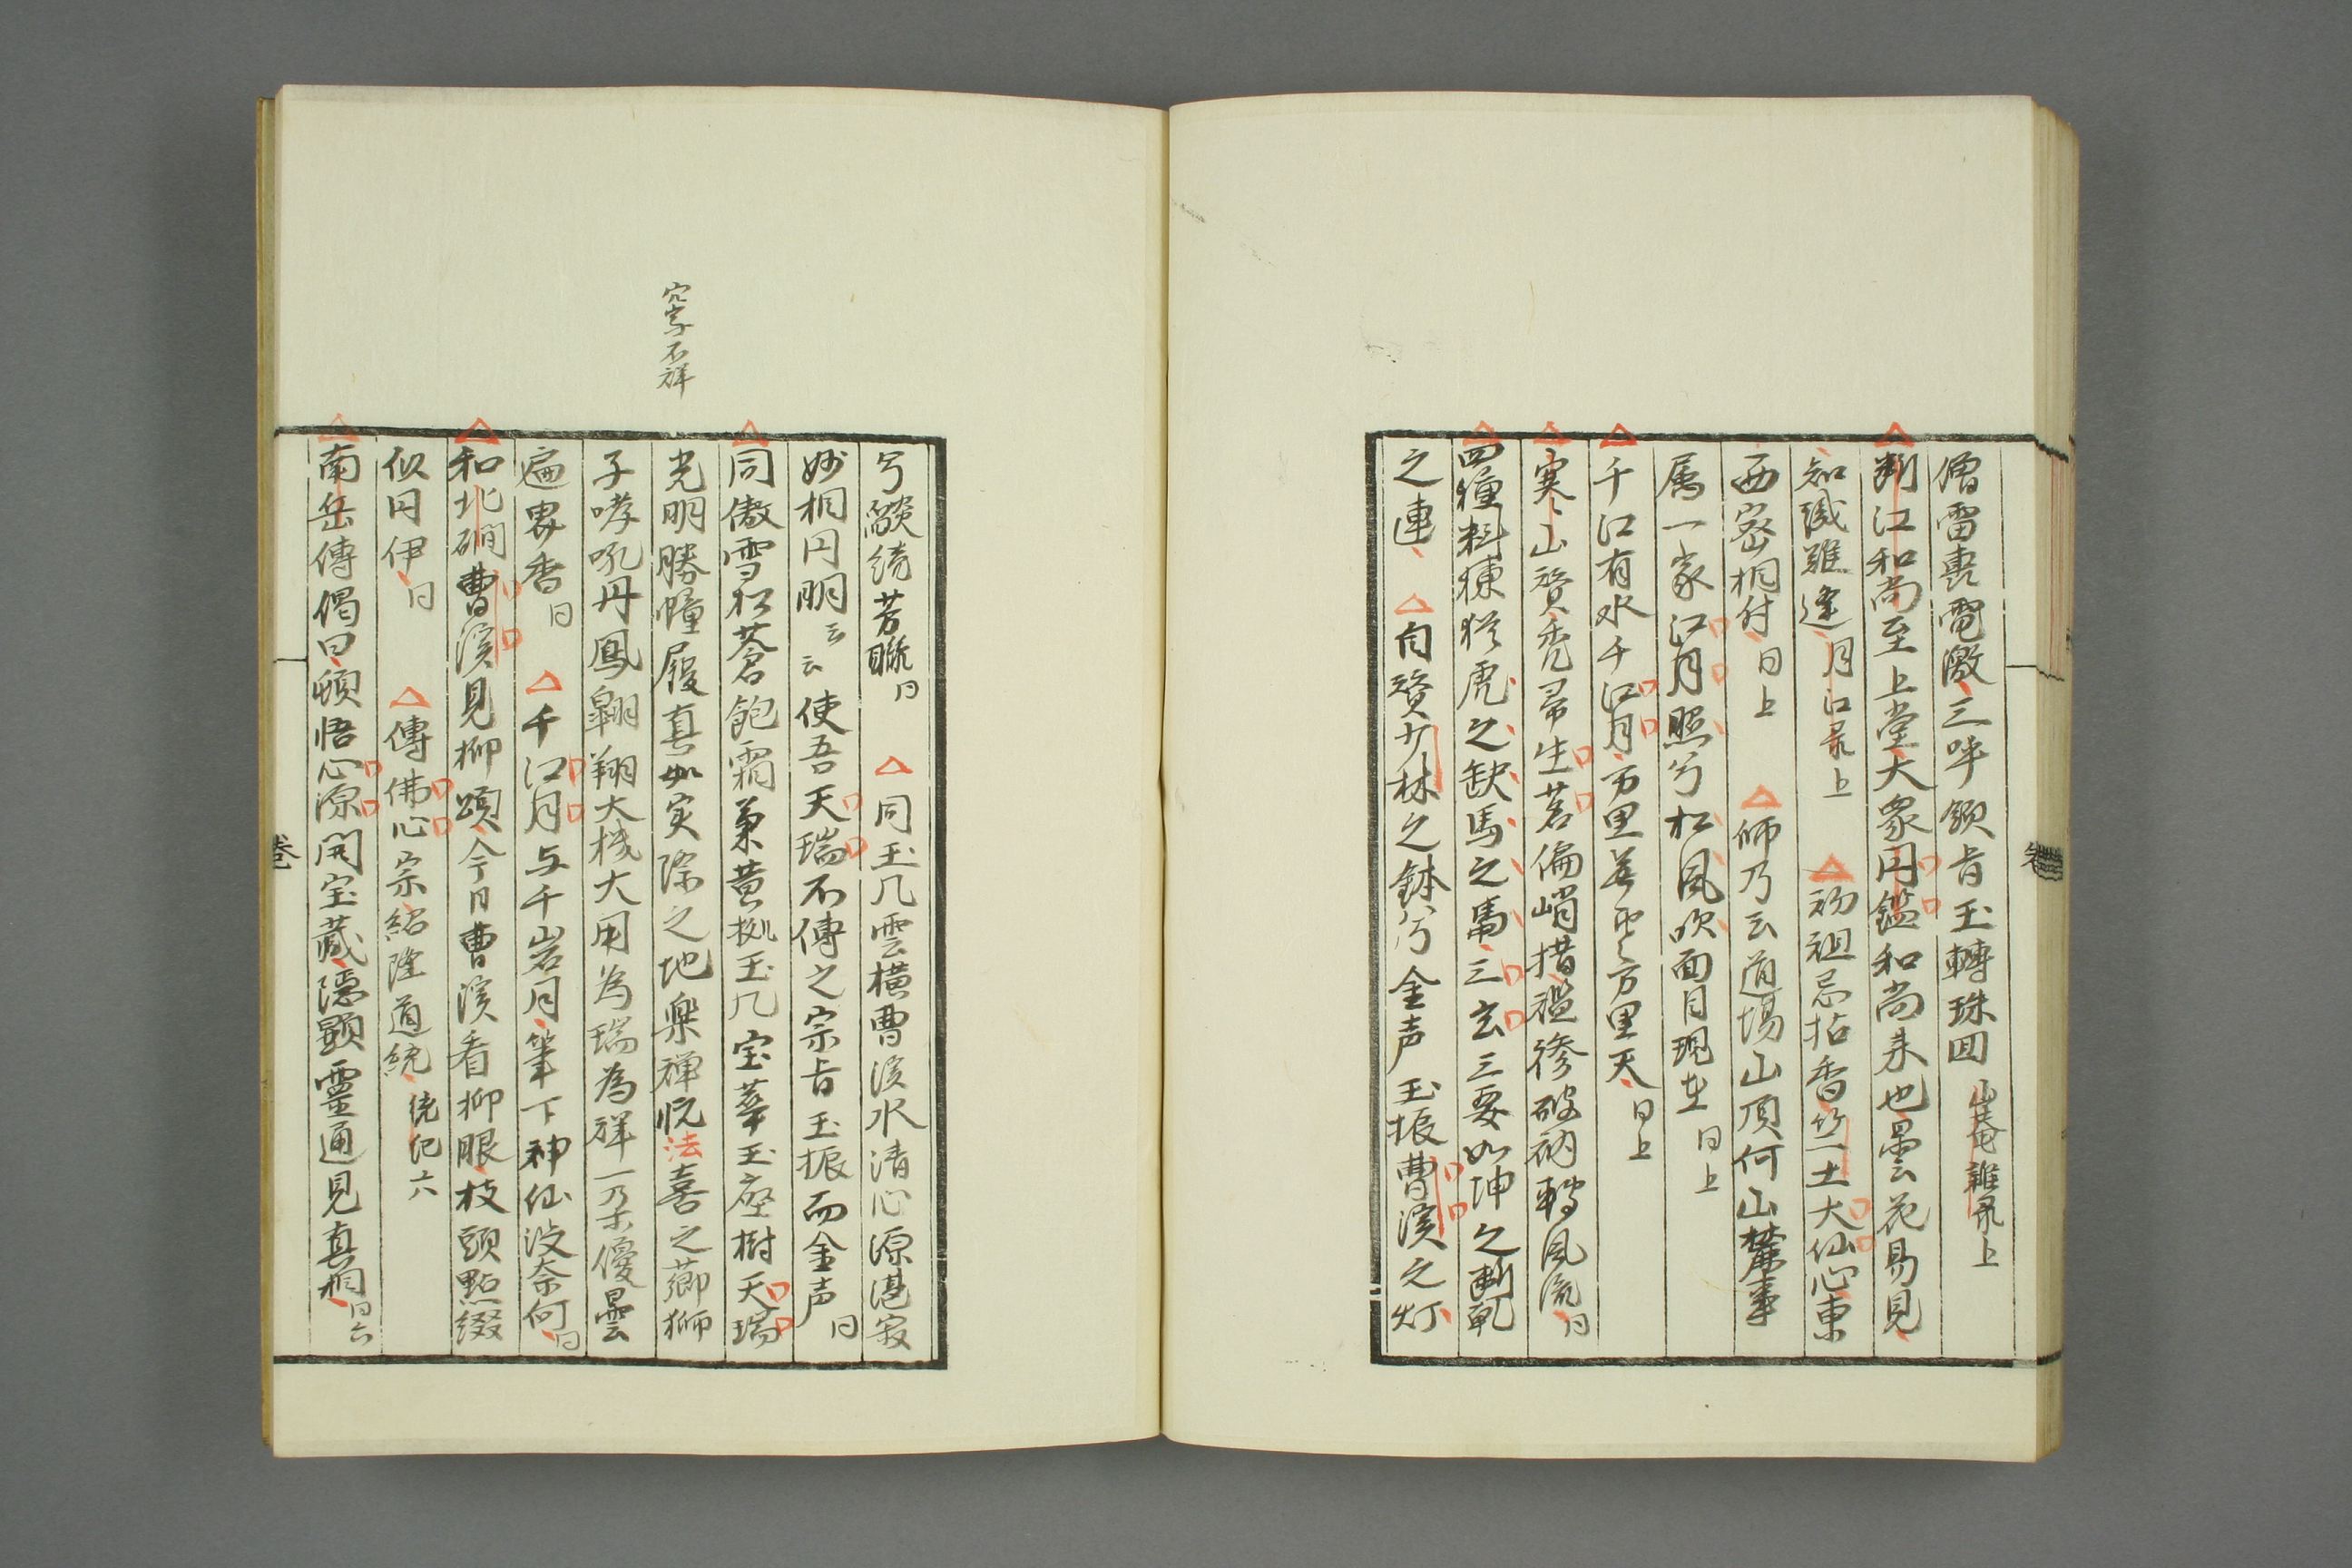 僧雷轟電激三呼領旨玉轉珠回 山菴雜录上
△断江和尚至上堂大衆円鑑和尚来也曇花易見
知識難逢月江录上 △初祖忌拈香竺土大仙心東
西密相付 日上 △師乃云道場山頂何山麓事
属一家江月照兮松風吹面目現在 日上
△千江有水千江月万里無雲万里天 日上
△寒山賛禿帚生苕偏峭措襤襂破衲轉風流 日
△四種料揀猶虎之缺馬之馵三玄三要如坤之断乾
之連 △自賛少林之鉢兮金声玉振曹溪之灯
兮燄続芳聯 日 △同玉几雲横曹溪水清心源湛寂
妙相円明云云使吾天瑞不傳之宗旨玉振而金声 日
△同傲雪松蒼飽霜菓黄拠玉几宝華玉座樹天瑞
光明勝幢履真如実際之地楽禅悦法喜之薌獅
子哮吼丹鳳翱翔大機大用為瑞為祥一朶優曇
遍界香 日 △千江月与千岩月筆下神仙没奈何 日
△和北磵曹溪見柳頌今日曹溪看柳眼枝頭點綴
似円伊 日 △傳佛心宗紹隆道統 統紀六
△南岳傳偈曰頓悟心源開宝蔵隠顕靈通見真相 日六
字不詳
卷